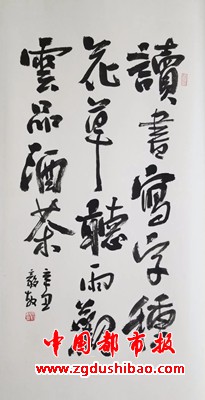 讀書寫字種
花草聽雨觀
雲品酒茶
中國都市报
www.zgdushibao.com